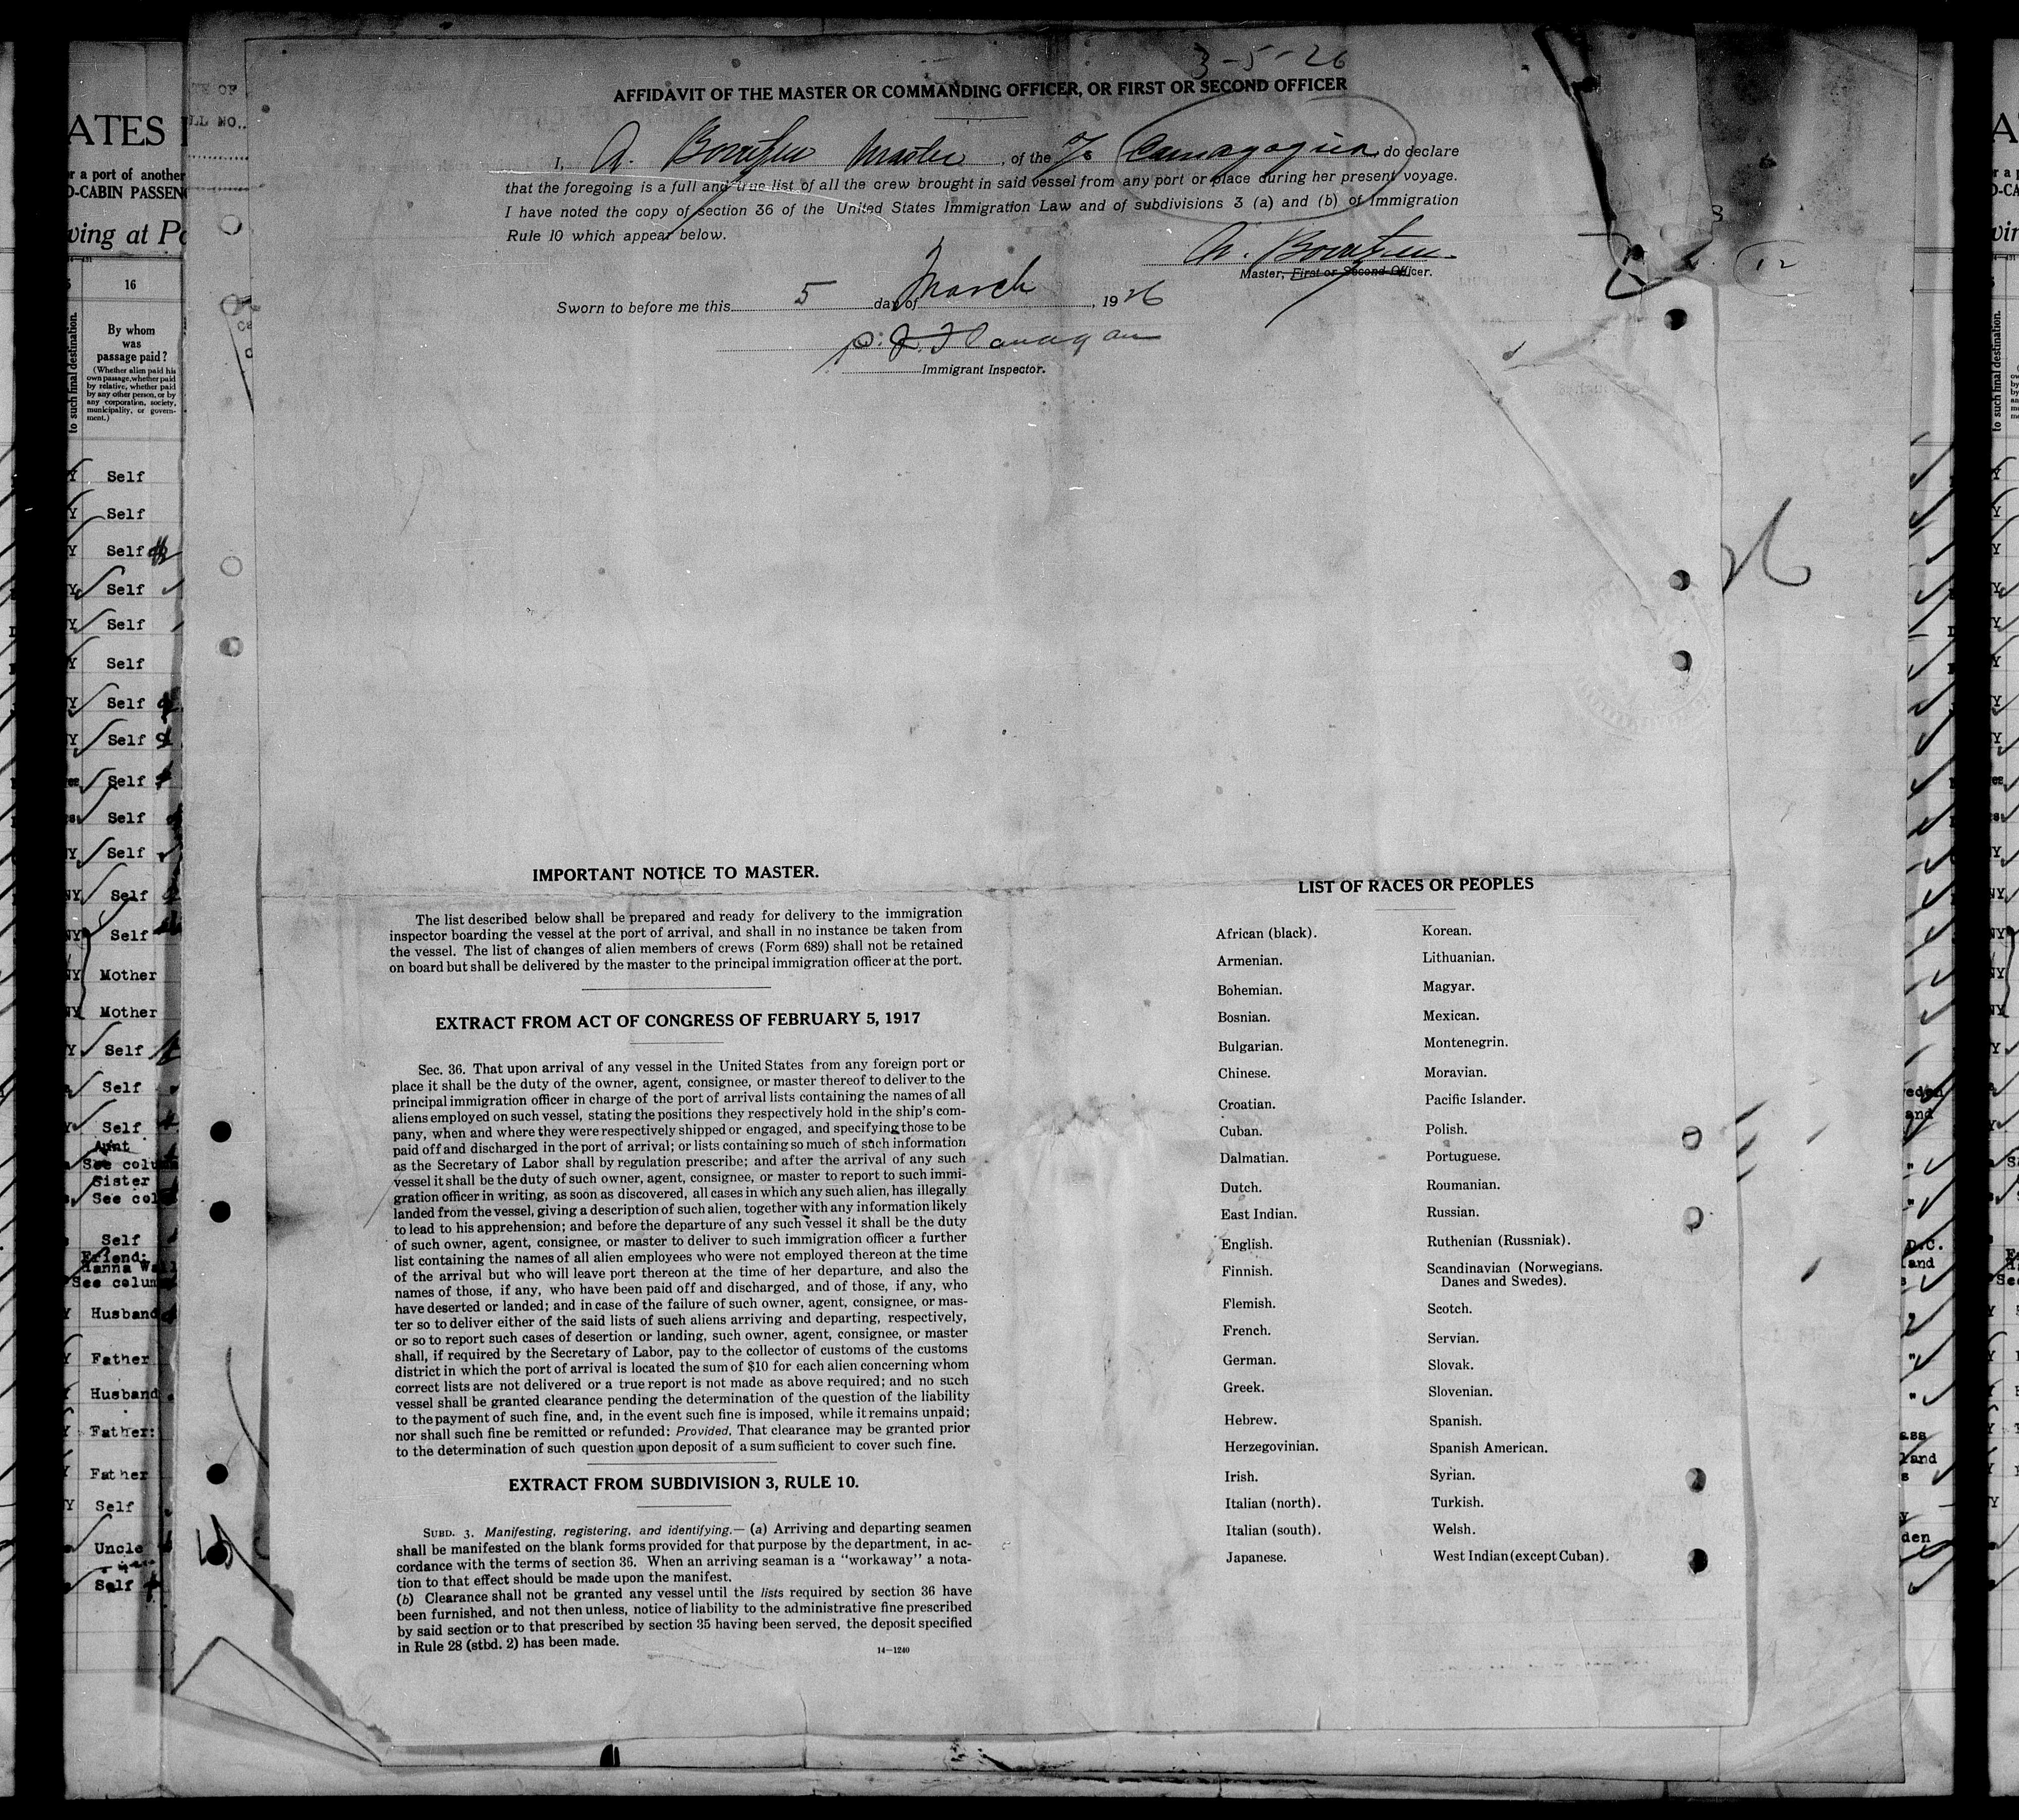 3-5-26
AFFIDAVIT OF THE MASTER OR COMMANDING OFFICER, OR FIRST OR SECOND OFFICER
I, A. Master, of the do declare
that the foregoing is a full and true list of all the crew brought in said vessel from any port or place during her present voyage.
I have noted the copy of section 36 of the United States Immigration Law and of subdivisions 3 (a) and (b) of Immigration
Rule 10 which appear below.
Master, First or Second Officer.
Sworn to before me this 5 day of March, 1926
Flanagan
Immigrant Inspector.
12
26
IMPORTANT NOTICE TO MASTER.
The list described below shall be prepared and ready for delivery to the immigration
inspector boarding the vessel at the port of arrival, and shall in no instance be taken from
the vessel. The list of changes of alien members of crews (Form 689) shall not be retained
on board but shall be delivered by the master to the principal immigration officer at the port.
EXTRACT FROM ACT OF CONGRESS OF FEBRUARY 5, 1917
Sec. 36. That upon arrival of any vessel in the United States from any foreign port or
place it shall be the duty of the owner, agent, consignee, or master thereof to deliver to the
principal immigration officer in charge of the port of arrival lists containing the names of all
aliens employed on such vessel, stating the positions they respectively hold in the ship's com-
pany, when and where they were respectively shipped or engaged, and specifying those to be
paid off and discharged in the port of arrival; or lists containing so much of such information
as the Secretary of Labor shall by regulation prescribe; and after the arrival of any such
vessel it shall be the duty of such owner, agent, consignee, or master to report to such immi-
gration officer in writing, as soon as discovered, all cases in which any such alien, has illegally
landed from the vessel, giving a description of such alien, together with any information likely
to lead to his apprehension; and before the departure of any such vessel it shall be the duty
of such owner, agent, consignee, or master to deliver to such immigration officer a further
list containing the names of all alien employees who were not employed thereon at the time
of the arrival but who will leave port thereon at the time of her departure, and also the
names of those, if any, who have been paid off and discharged, and of those, if any, who
have deserted or landed; and in case of the failure of such owner, agent, consignee, or mas-
ter so to deliver either of the said lists of such aliens arriving and departing, respectively,
or so to report such cases of desertion or landing, such owner, agent, consignee, or master
shall, if required by the Secretary of Labor, pay to the collector of customs of the customs
district in which the port of arrival is located the sum of $10 for each alien concerning whom
correct lists are not delivered or a true report is not made as above required; and no such
vessel shall be granted clearance pending the determination of the question of the liability
to the payment of such fine, and, in the event such fine is imposed, while it remains unpaid;
nor shall such fine be remitted or refunded: Provided, That clearance may be granted prior
to the determination of such question upon deposit of a sum sufficient to cover such fine.
EXTRACT FROM SUBDIVISION 3, RULE 10.
SUBD. 3. Manifesting, registering, and identifying.— (a) Arriving and departing seamen
shall be manifested on the blank forms provided for that purpose by the department, in ac-
cordance with the terms of section 36. When an arriving seaman is a "workaway" a nota-
tion to that effect should be made upon the manifest.
(b) Clearance shall not be granted any vessel until the lists required by section 36 have
been furnished, and not then unless, notice of liability to the administrative fine prescribed
by said section or to that prescribed by section 35 having been served, the deposit specified
in Rule 28 (stbd. 2) has been made.
14—1240
LIST OF RACES OR PEOPLES
African (black).
Armenian.
Bohemian.
Bosnian.
Bulgarian.
Chinese.
Croatian.
Cuban.
Dalmatian.
Dutch.
East Indian.
English.
Finnish.
Flemish.
French.
German.
Greek.
Hebrew.
Herzegovinian.
Irish.
Italian (north).
Italian (south).
Japanese.
Korean.
Lithuanian.
Magyar.
Mexican.
Montenegrin.
Moravian.
Pacific Islander.
Polish.
Portuguese.
Roumanian.
Russian.
Ruthenian (Russniak).
Scandinavian (Norwegians.
Danes and Swedes).
Scotch.
Servian.
Slovak.
Slovenian.
Spanish.
Spanish American.
Syrian.
Turkish.
Welsh.
West Indian (except Cuban).
ATES
r a port of another
D-CABIN PASSEN
ving at Po
16
to such final destination.
By whom
was
passage paid?
(Whether alien paid his
own passage, whether paid
by relative, whether paid
by any other person, or by
any corporation, society,
municipality, or govern-
ment.)
Self
Self
Self
Self
Self
Self
Self
Self
Self
Self
Self
Self
Self
Mother
Mother
Self
Self
Self
Aunt
See colu
Sister
See col
Self
Friend:
Hanna Wal
See colum
Husband
Father
Husband
Father:
Father
Self
Uncle
Self